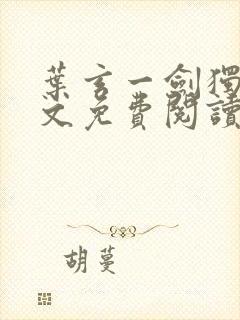 葉玄一劍獨
文免費閱讀
胡蔓